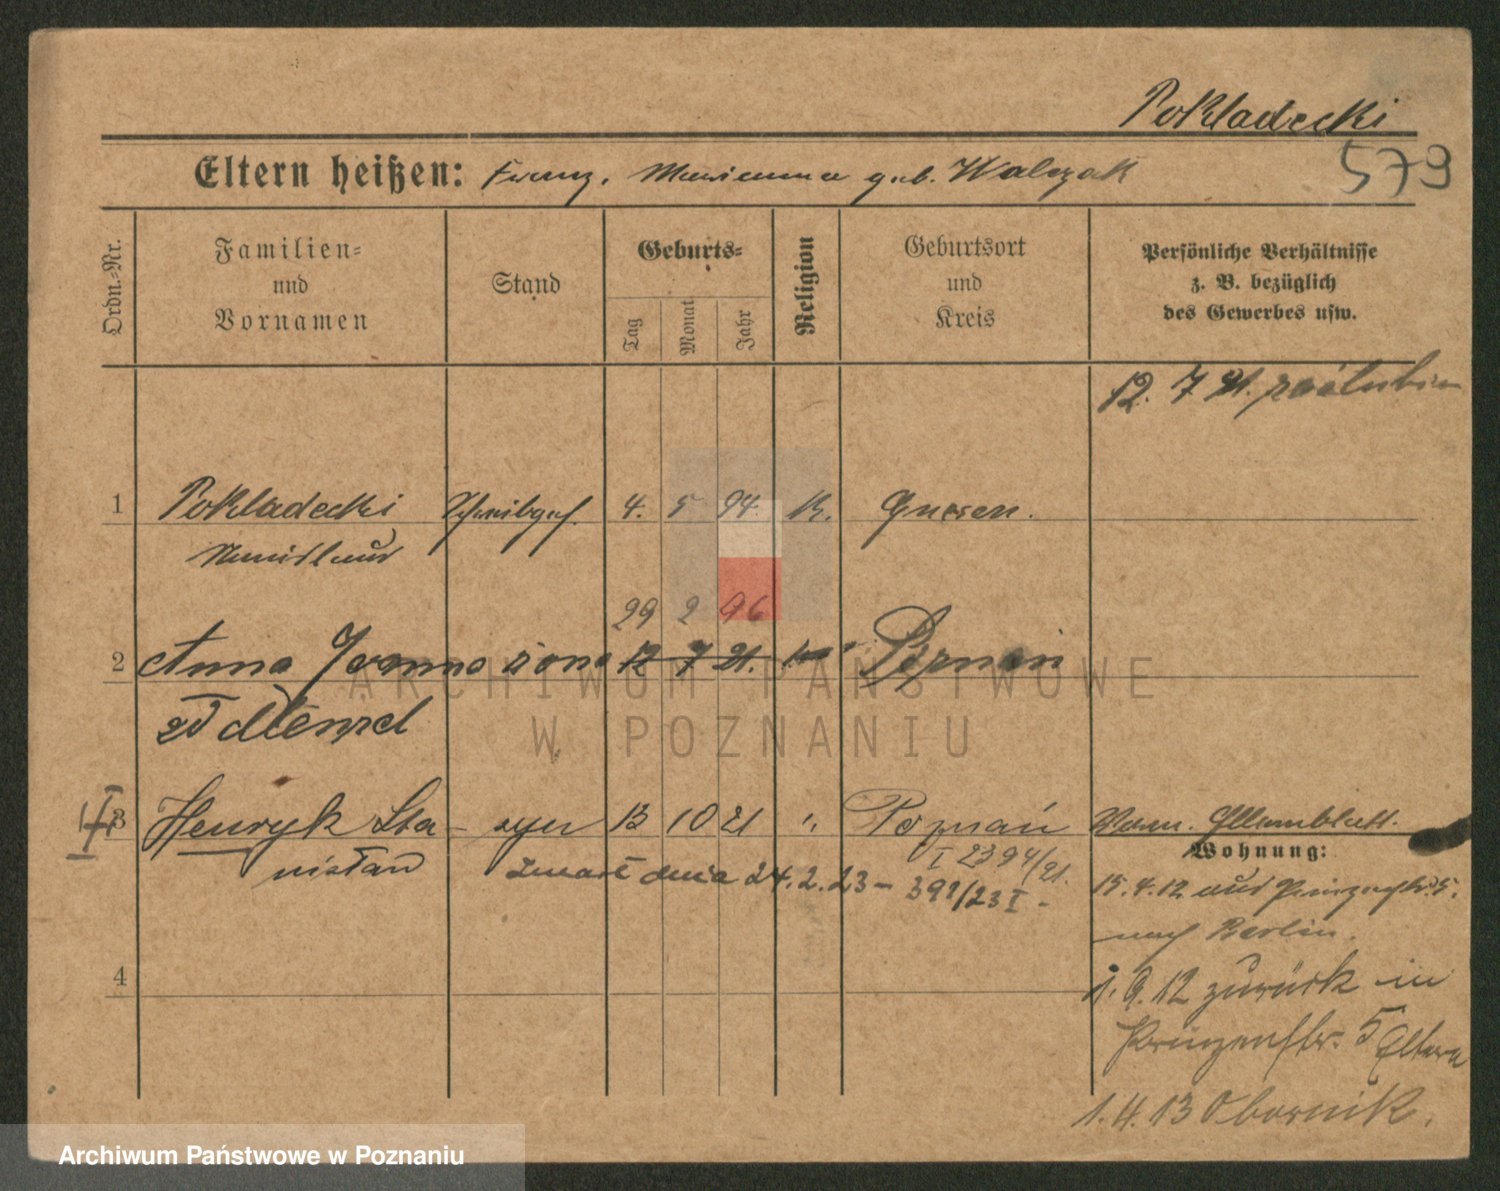 Pokladecki
579
Eltern heißen: Franz, Marianna geb. Walczak
Ordn.-Nr.
Familien-
und
Vornamen
Stand
Geburts-
Tag
Monat
Jahr
Religion
Geburtsort
und
Kreis
Persönliche Verhältnisse
z. B. bezüglich
des Gewerbes usw.
12. 7 21. zaślubion
1 Pokladecki Schreibgeh. 4. 5 94. K. Gnesen.
29 2 96
2 Anna Joanna żona 12 7 21. Poznań
zd
3 Henryk Sta- syn 13 10 21 " Poznań Vorm. Elternblatt.
nisław
I 2394/21.
Zmarł dnia 24.2.23 - 391/23 I -
Wohnung:
15.4.12 aus Prinzenstr. 5.
nach Berlin.
1.9.12 zurück in
Prinzenstr. 5 Eltern
4
1.4.13 Obornik.
ARCHIWUM PAŃSTWOWE
W POZNANIU
Archiwum Państwowe w Poznaniu